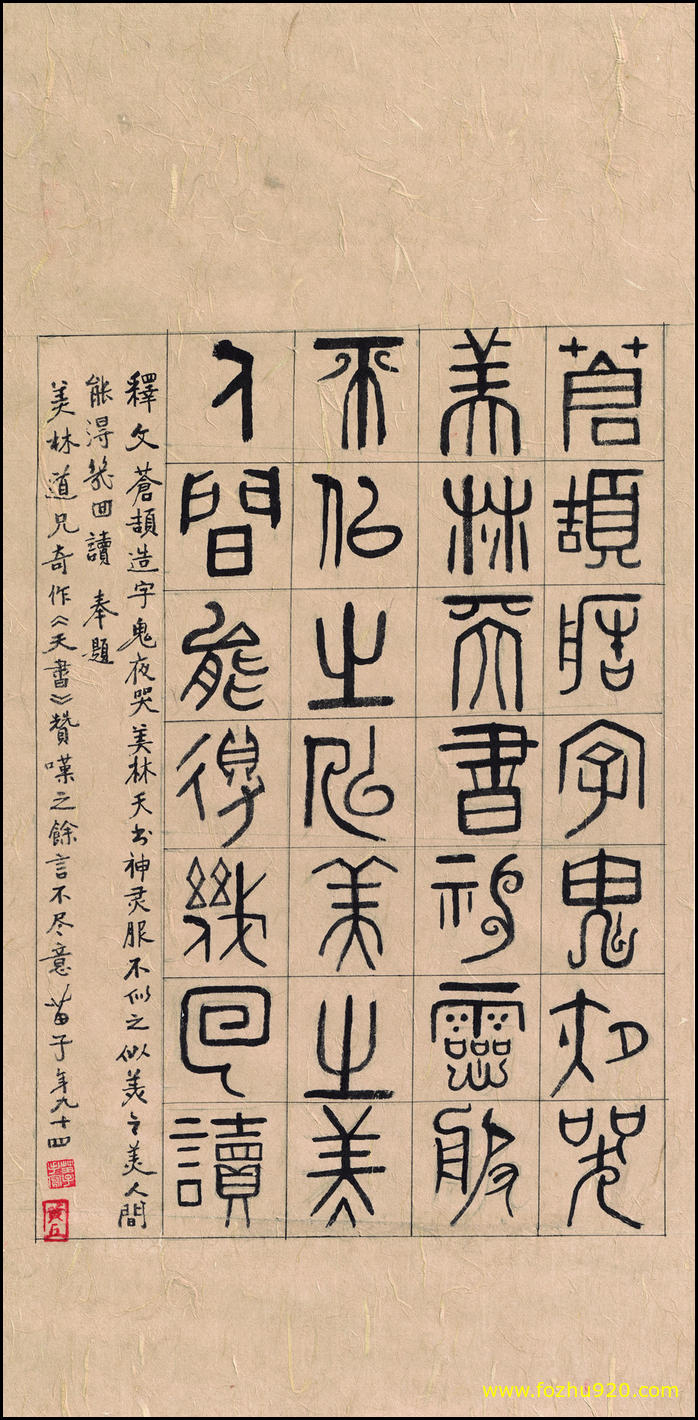 蒼頡造字鬼夜哭
美林天書神靈服
不似之似美之美
人間能得幾回讀
釋文蒼頡造字鬼夜哭美林天书神灵服不似之似美之美人間
能得幾回讀 奉題
美林道兄奇作《天書》贊嘆之餘言不尽意 苗子 年九十四
www.fozhu920.com